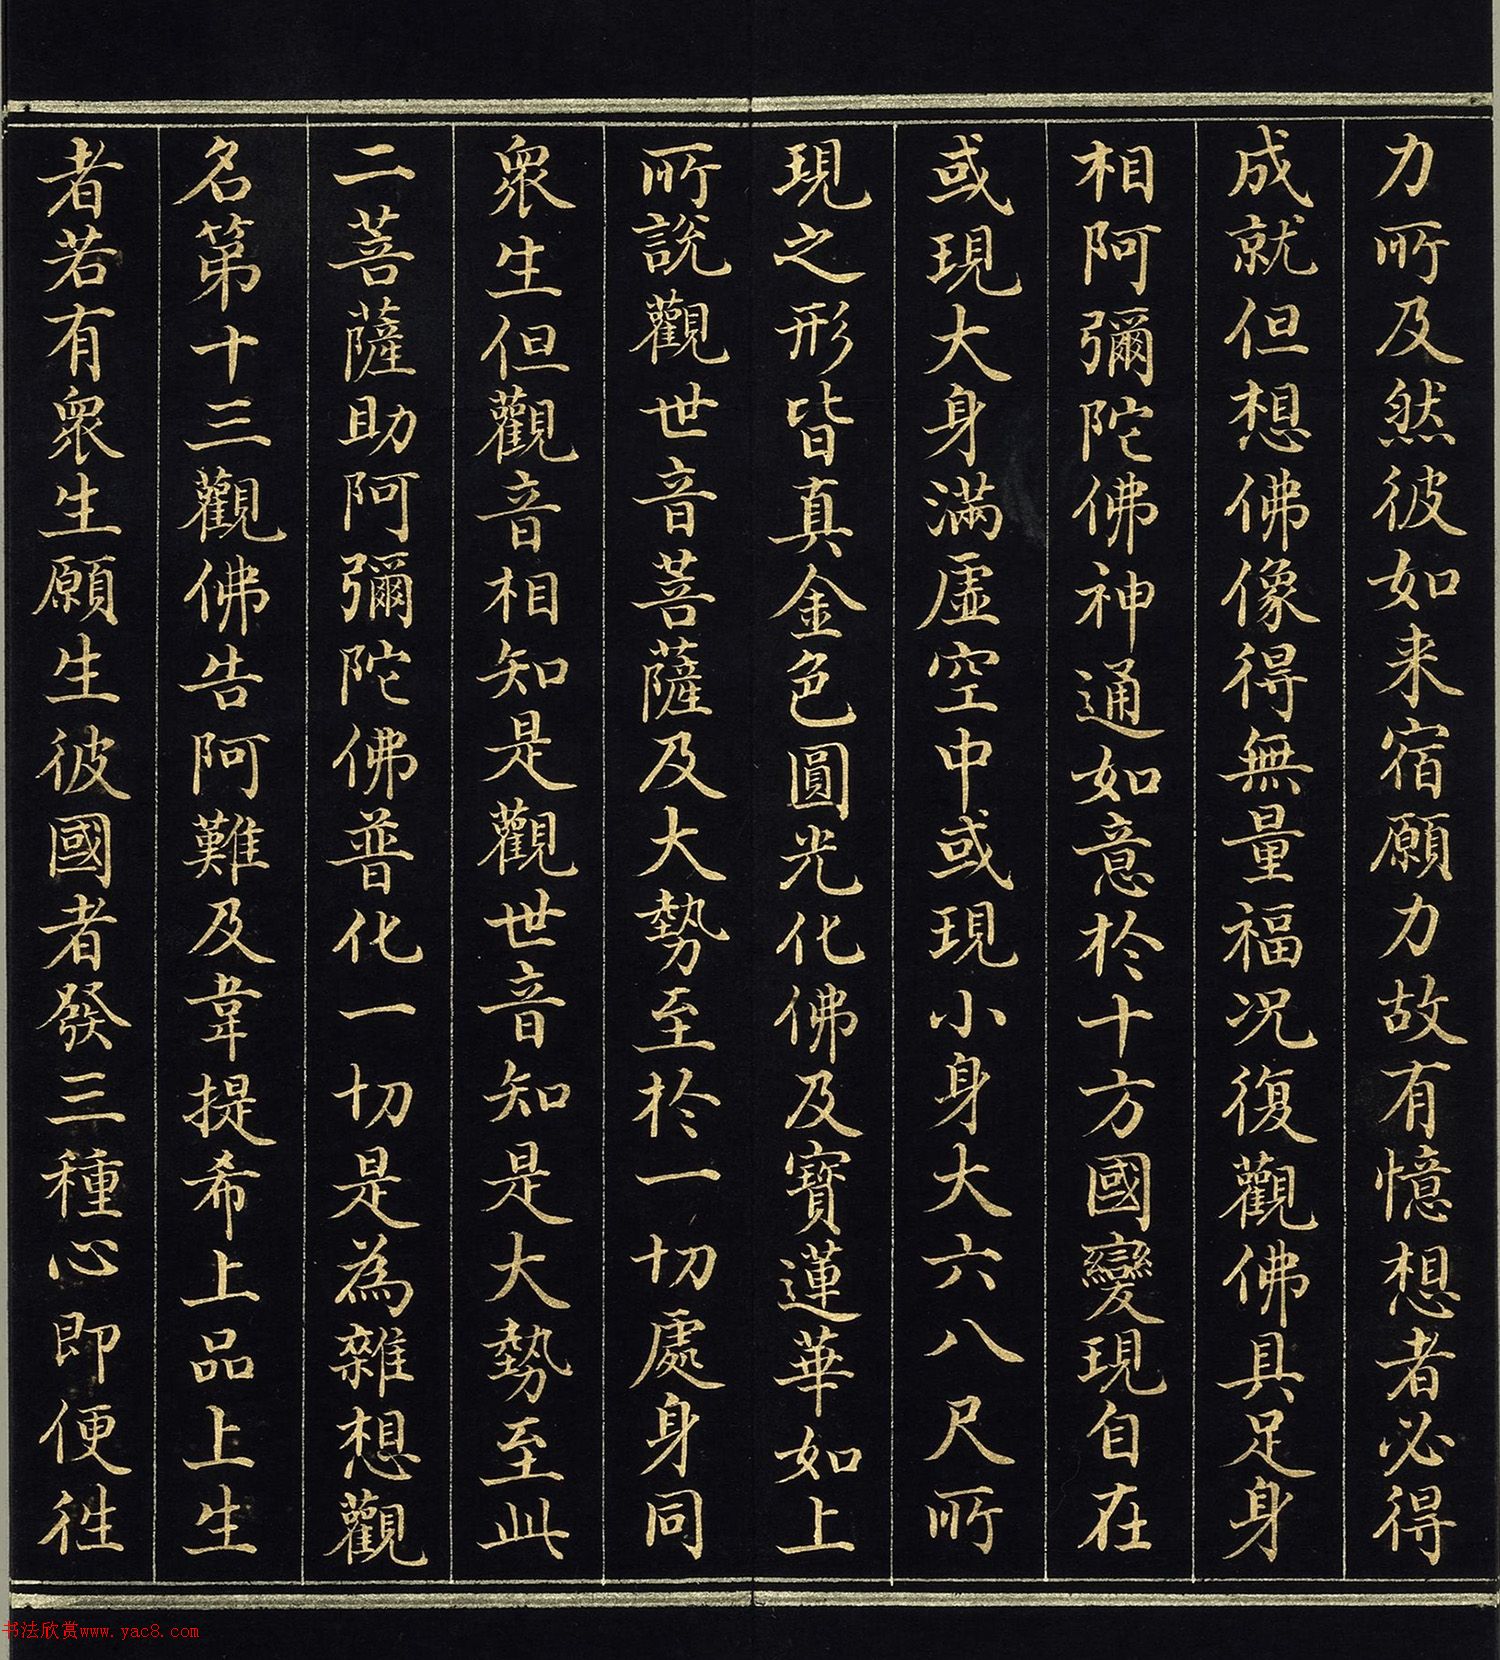 力所及然彼如来宿願力故有憶想者必得
成就但想佛像得無量福况復觀佛具足身
相阿彌陀佛神通如意於十方國變現自在
或現大身滿虛空中或現小身大六八尺所
現之形皆真金色圓光化佛及寶蓮華如上
所說觀世音菩薩及大勢至於一切處身同
衆生但觀音相知是觀世音知是大勢至此
二菩薩助阿彌陀佛普化一切是為雜想觀
名第十三觀佛告阿難及韋提希上品上生
者若有衆生願生彼國者發三種心即便徃
书法欣赏www.yac8.com